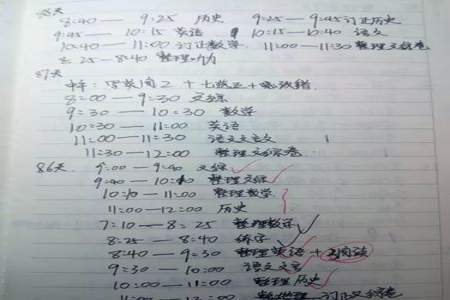 88天
8:40 — 9:25 历史 9:25 — 9:45 订正历史
9:45 — 10:15 英语 10:15 — 10:40 语文
10:40 — 11:00 订正数学 11:00 — 11:30 整理文综卷
8:25 — 8:40 整理
87天
8:00 — 9:30 文综
9:30 — 10:30 数学
10:30 — 11:00 英语
11:00 — 11:30 语文文言文
11:30 — 12:00 整理文综卷
86天 9:00 — 9:40 文综
9:40 — 10:10 整理文综
10:10 — 11:00 整理数学
11:00 — 12:00 历史
7:10 — 8:25 整理数学
8:25 — 8:40 练字
8:40 — 9:30 整理英语 + 阅读
9:30 — 10:00 语文文言
10:00 — 11:00 整理历史
11:00 — 12:00 整理 订正文综卷